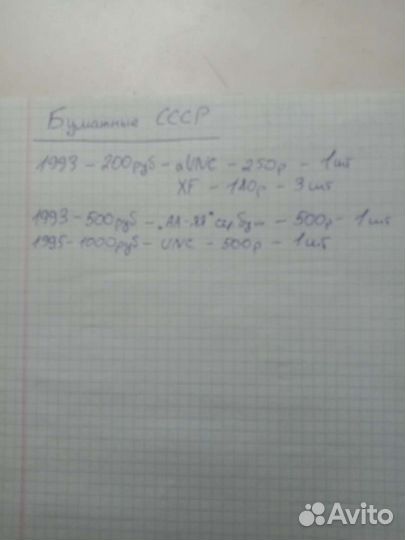 Бумажные СССР
1993 - 200руб - aUNC - 250р - 1шт
XF - 140р - 3шт
1993 - 500руб - - 500р - 1шт
1995 - 1000руб - UNC - 500р - 1шт
Avito